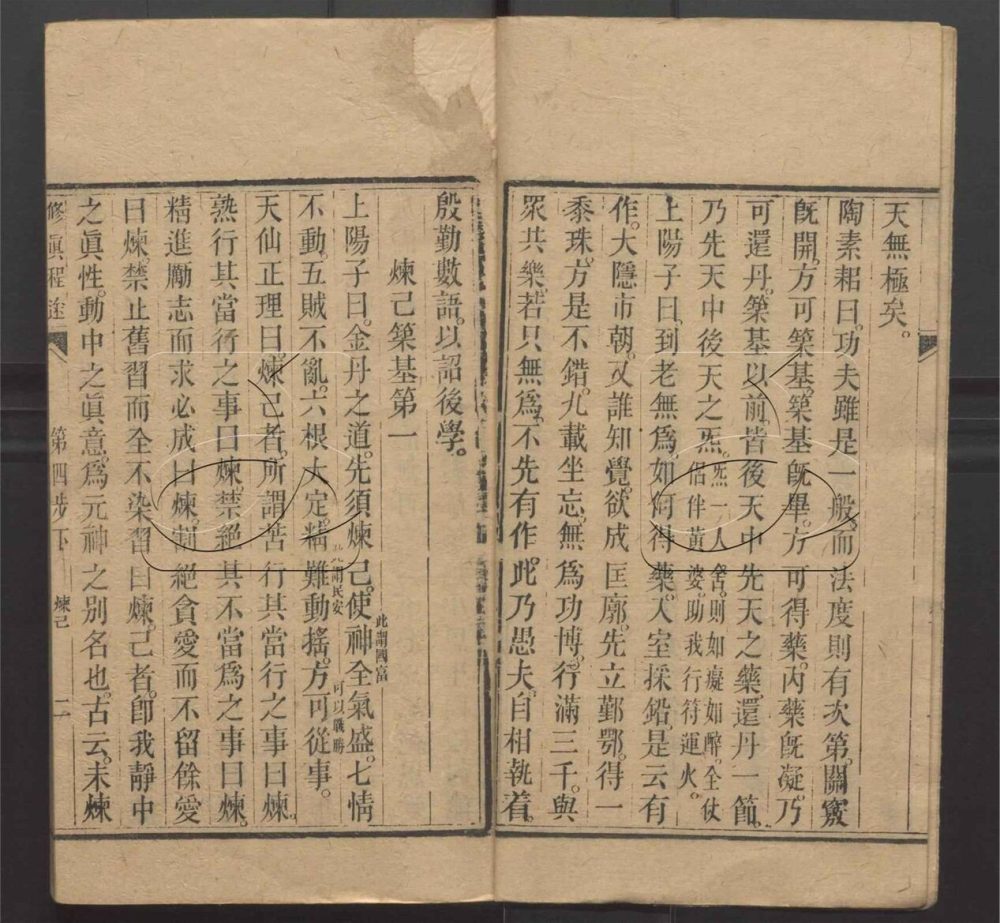 天無極矣。
陶素耜曰。功夫雖是一般。而法度則有次第。關竅
旣開。方可築基。築基旣畢。方可得藥。內藥旣凝。乃
可還丹。築基以前。皆後天中先天之藥。還丹一節。
乃先天中後天之炁。炁一人舍。則如癡如醉。全仗
侶伴黃婆。助我行符運火。
上陽子曰。到老無爲。如何得藥。入室採鉛是云有
作。大隱市朝。又誰知覺。欲成匡廓。先立鄞鄂。得一
黍珠。方是不錯。九載坐忘。無爲功博。行滿三千。與
眾共樂。若只無爲。不先有作。此乃愚夫。自相執着。
殷勤數語。以詔後學。
煉己築基第一
上陽子曰。金丹之道。先須煉己。使神全氣盛。七情
此謂國富
不動。五賊不亂。六根大定。精難動搖。方可從事。
此謂民安
可以戰勝
天仙正理曰。煉己者。所謂苦行其當行之事曰煉。
熟行其當行之事曰煉。禁絕其不當爲之事曰煉。
精進勵志而求必成曰煉。割絕貪愛而不留餘愛
曰煉。禁止舊習而全不染習曰煉。己者。卽我靜中
之眞性。動中之眞意。爲元神之別名也。古云。未煉
修眞程途
第四步下
煉己
二